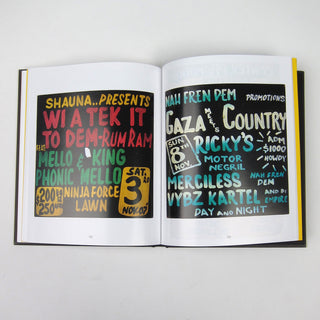 SHAUNA.. PRESENTS
WI A TEK IT
TO DEM-RUM RAM
MELLO & KING
PHONIC MELLO
SAT.
3RD
NOV. 07
$200
$250
NINJA FORCE
LAWN
NAH FREN DEM PROMOTIONS
GAZA MEETS COUNTRY
SUN
8TH
NOV
RICKY'S
MOTOR
NEGRIL
ADM
$1000
HOWDY
MERCILESS
NAH FREN
DEM
VYBZ KARTEL AND DI
EMPIRE
DAY AND NIGHT